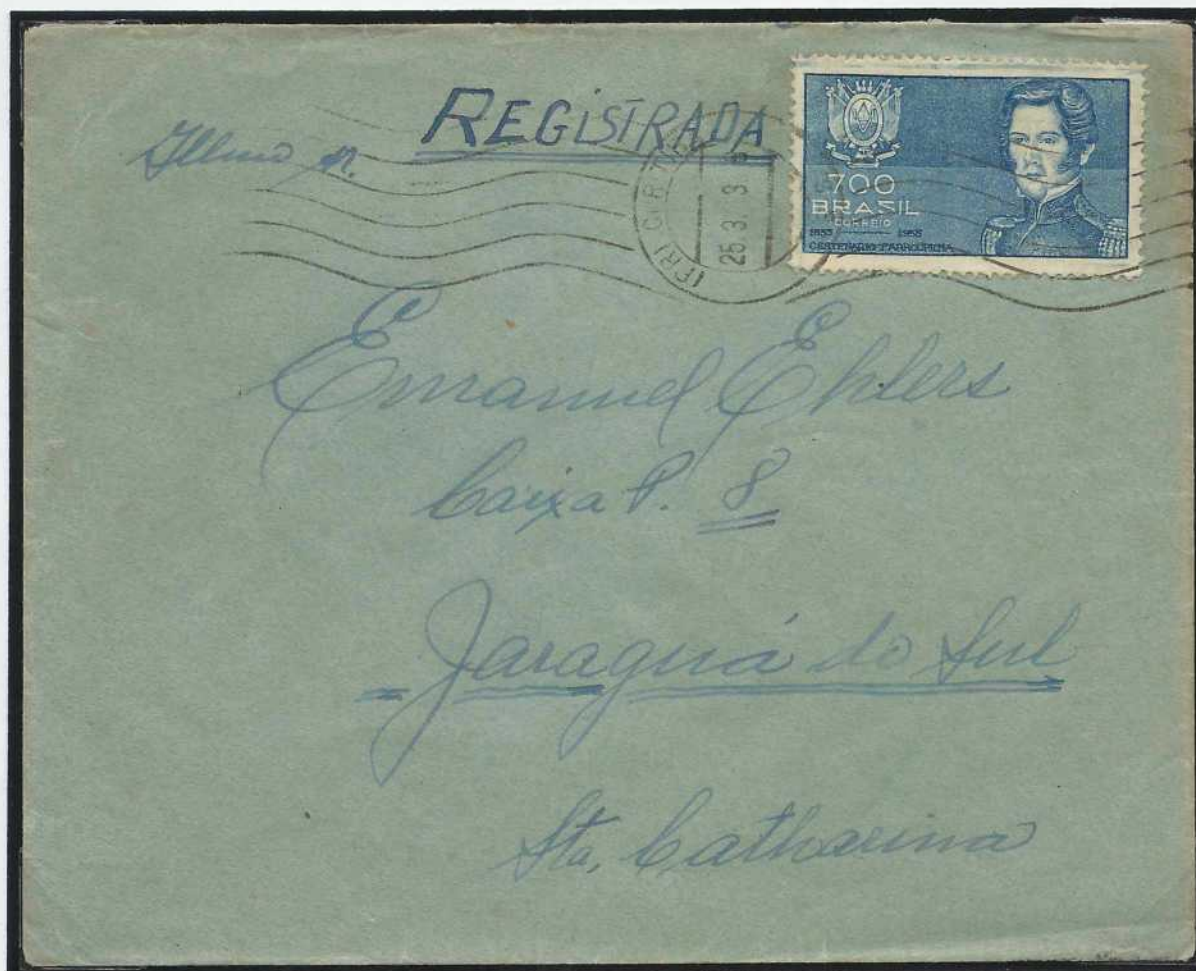 REGISTRADA
Illmo Sr.
25.3.3
700
BRASIL
CORREIO
1835 1935
CENTENARIO FARROUPILHA
Emanuel Ehlers
Caixa P. 8
Jaraguá do Sul
Sta. Catharina